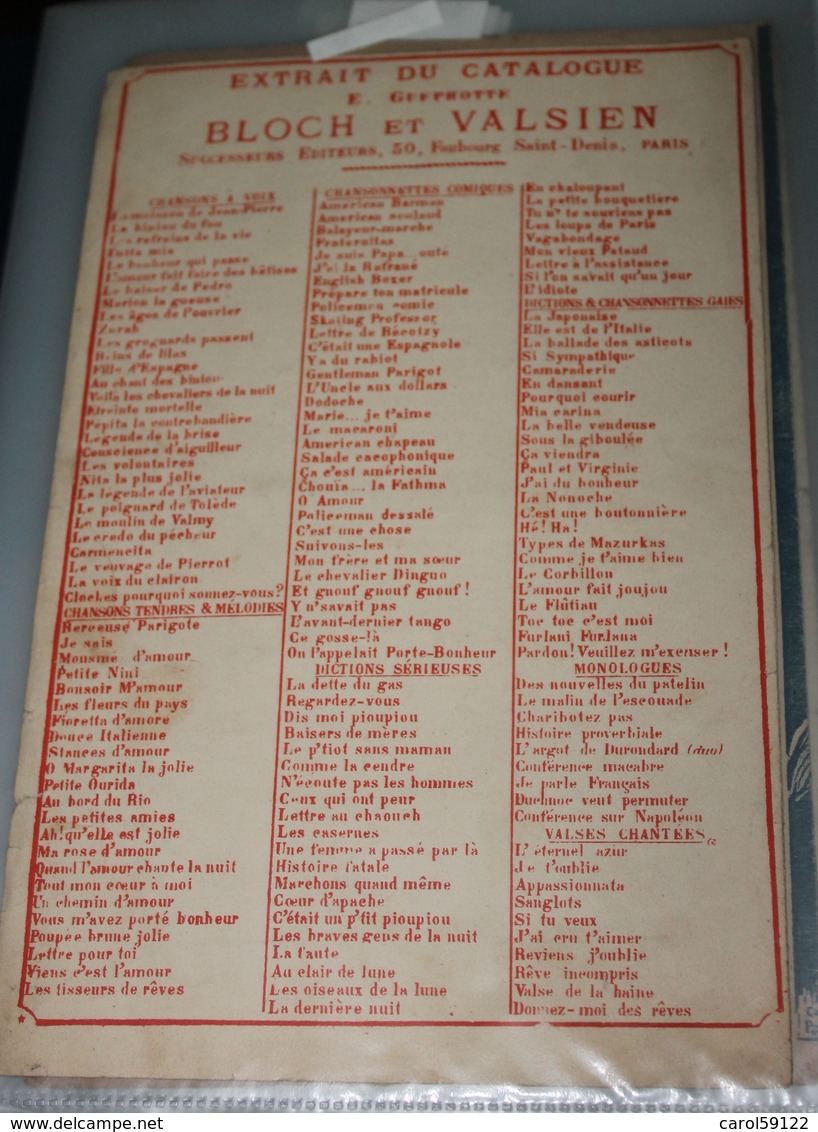 EXTRAIT DU CATALOGUE
E. GUEPROTTE
BLOCH ET VALSIEN
SUCCESSEURS EDITEURS, 50, Faubourg Saint-Denis, PARIS
CHANSONS A VOIX
La maison de Jean-Pierre
Le biniou du fou
Les refrains de la vie
mia
Le bonheur qui passe
L'amour fait faire des bêtises
Le baiser de Pedro
Marion la gueuse
Les âges de l'ouvrier
Zorah
Les grognards passent
Brins de lilas
Fille d'Espagne
Au chant des binious
Voilà les chevaliers de la nuit
Etreinte mortelle
Pepita la contrebandière
Légende de la brise
Conscience d'aiguilleur
Les volontaires
Nita la plus jolie
La légende de l'aviateur
Le poignard de Tolède
Le moulin de Valmy
Le credo du pécheur
Carmencita
Le veuvage de Pierrot
La voix du clairon
Cloches pourquoi sonnez-vous?
CHANSONS TENDRES & MÉLODIES
Berceuse Parigote
Je sais
Mousmé d'amour
Petite Nini
Bonsoir M'amour
Les fleurs du pays
Fioretta d'amore
Douce Italienne
Stances d'amour
O Margarita la jolie
Petite Ourida
Au bord du Rio
Les petites amies
Ah! qu'elle est jolie
Ma rose d'amour
Quand l'amour chante la nuit
Tout mon cœur à moi
Un chemin d'amour
Vous m'avez porté bonheur
Poupée brune jolie
Lettre pour toi
Viens c'est l'amour
Les tisseurs de rêves
CHANSONNETTES COMIQUES
American Barman
American soulaud
Balayeur-marche
Fraternitas
Je suis Papa...outé
J'ai la Rafrane
English Boxer
Prépare ton matricule
Policemen comic
Skating Professor
Lettre de Bécotzy
C'était une Espagnole
Y a du rabiot
Gentleman Parigot
L'Uncle aux dollars
Dodoche
Marie... je t'aime
Le macaroni
American chapeau
Salade cacophonique
Ça c'est américain
Chouïa... la Fathma
O Amour
Policeman dessalé
C'est une chose
Suivons-les
Mon frère et ma sœur
Le chevalier Dinguo
Et gnouf gnouf gnouf!
Y n'savait pas
L'avant-dernier tango
Ce gosse-là
On l'appelait Porte-Bonheur
DICTIONS SÉRIEUSES
La dette du gas
Regardez-vous
Dis moi pioupiou
Baisers de mères
Le p'tiot sans maman
Comme la cendre
N'écoute pas les hommes
Ceux qui ont peur
Lettre au chaouch
Les casernes
Une femme a passé par là
Histoire fatale
Marchons quand même
Cœur d'apache
C'était un p'tit pioupiou
Les braves gens de la nuit
La faute
Au clair de lune
Les oiseaux de la lune
La dernière nuit
En chaloupant
La petite bouquetière
Tu n'te souviens pas
Les loups de Paris
Vagabondage
Mon vieux Pataud
Lettre à l'assistance
Si l'on savait qu'un jour
L'idiote
DICTIONS & CHANSONNETTES GAIES
La Japonaise
Elle est de l'Italie
La ballade des asticots
Si Sympathique
Camaraderie
En dansant
Pourquoi courir
Mia carina
La belle vendeuse
Sous la giboulée
Ça viendra
Paul et Virginie
J'ai du bonheur
La Nonoche
C'est une boutonnière
Hé! Ha!
Types de Mazurkas
Comme je t'aime bien
Le Corbillon
L'amour fait joujou
Le Flûtiau
Toc toc c'est moi
Furlani Furlana
Pardon! Veuillez m'excuser!
MONOLOGUES
Des nouvelles du patelin
Le malin de l'escouade
Charibotez pas
Histoire proverbiale
L'argot de Durondard (duo)
Conférence macabre
Je parle Français
Duchnoc veut permuter
Conférence sur Napoléon
VALSES CHANTÉES
L'éternel azur
Je t'oublie
Appassionnata
Sanglots
Si tu veux
J'ai cru t'aimer
Reviens j'oublie
Rêve incompris
Valse de la haine
Donnez-moi des rêves
carol59122